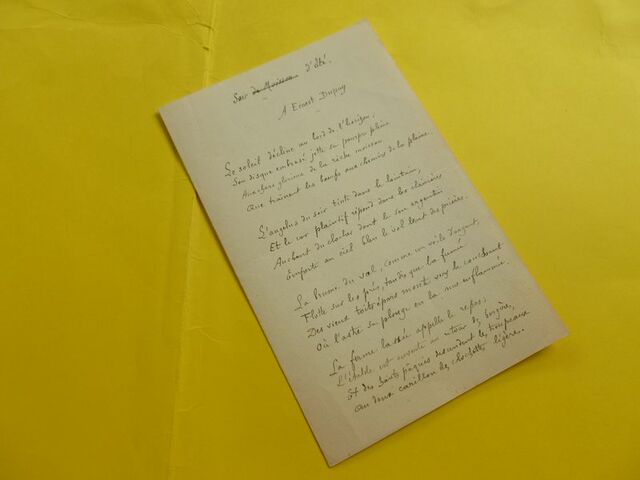 Soir de Moisson d'été.
A Ernest Dupuy
Le soleil décline au bord de l'horizon,
Son disque embrasé jette sa pourpre pleine
Aux chars de la riche moisson
Que traînent les bœufs aux chemins de la plaine.
L'angelus du soir tinte dans le lointain,
Et le cor plaintif répond dans les
Au chant du clocher dont le son argentin
Emporte au ciel bleu le vol lent des prières.
La brume du val, comme un voile d'argent,
Flotte sur les prés, tandis que la fumée
Des vieux toits épars monte vers le couchant
Où l'astre se plonge en la nue enflammée.
La ferme lassée appelle le repos;
L'étable est ouverte au retour des
Et des hauts descendent les troupeaux
Au doux carillon des clochettes légères.